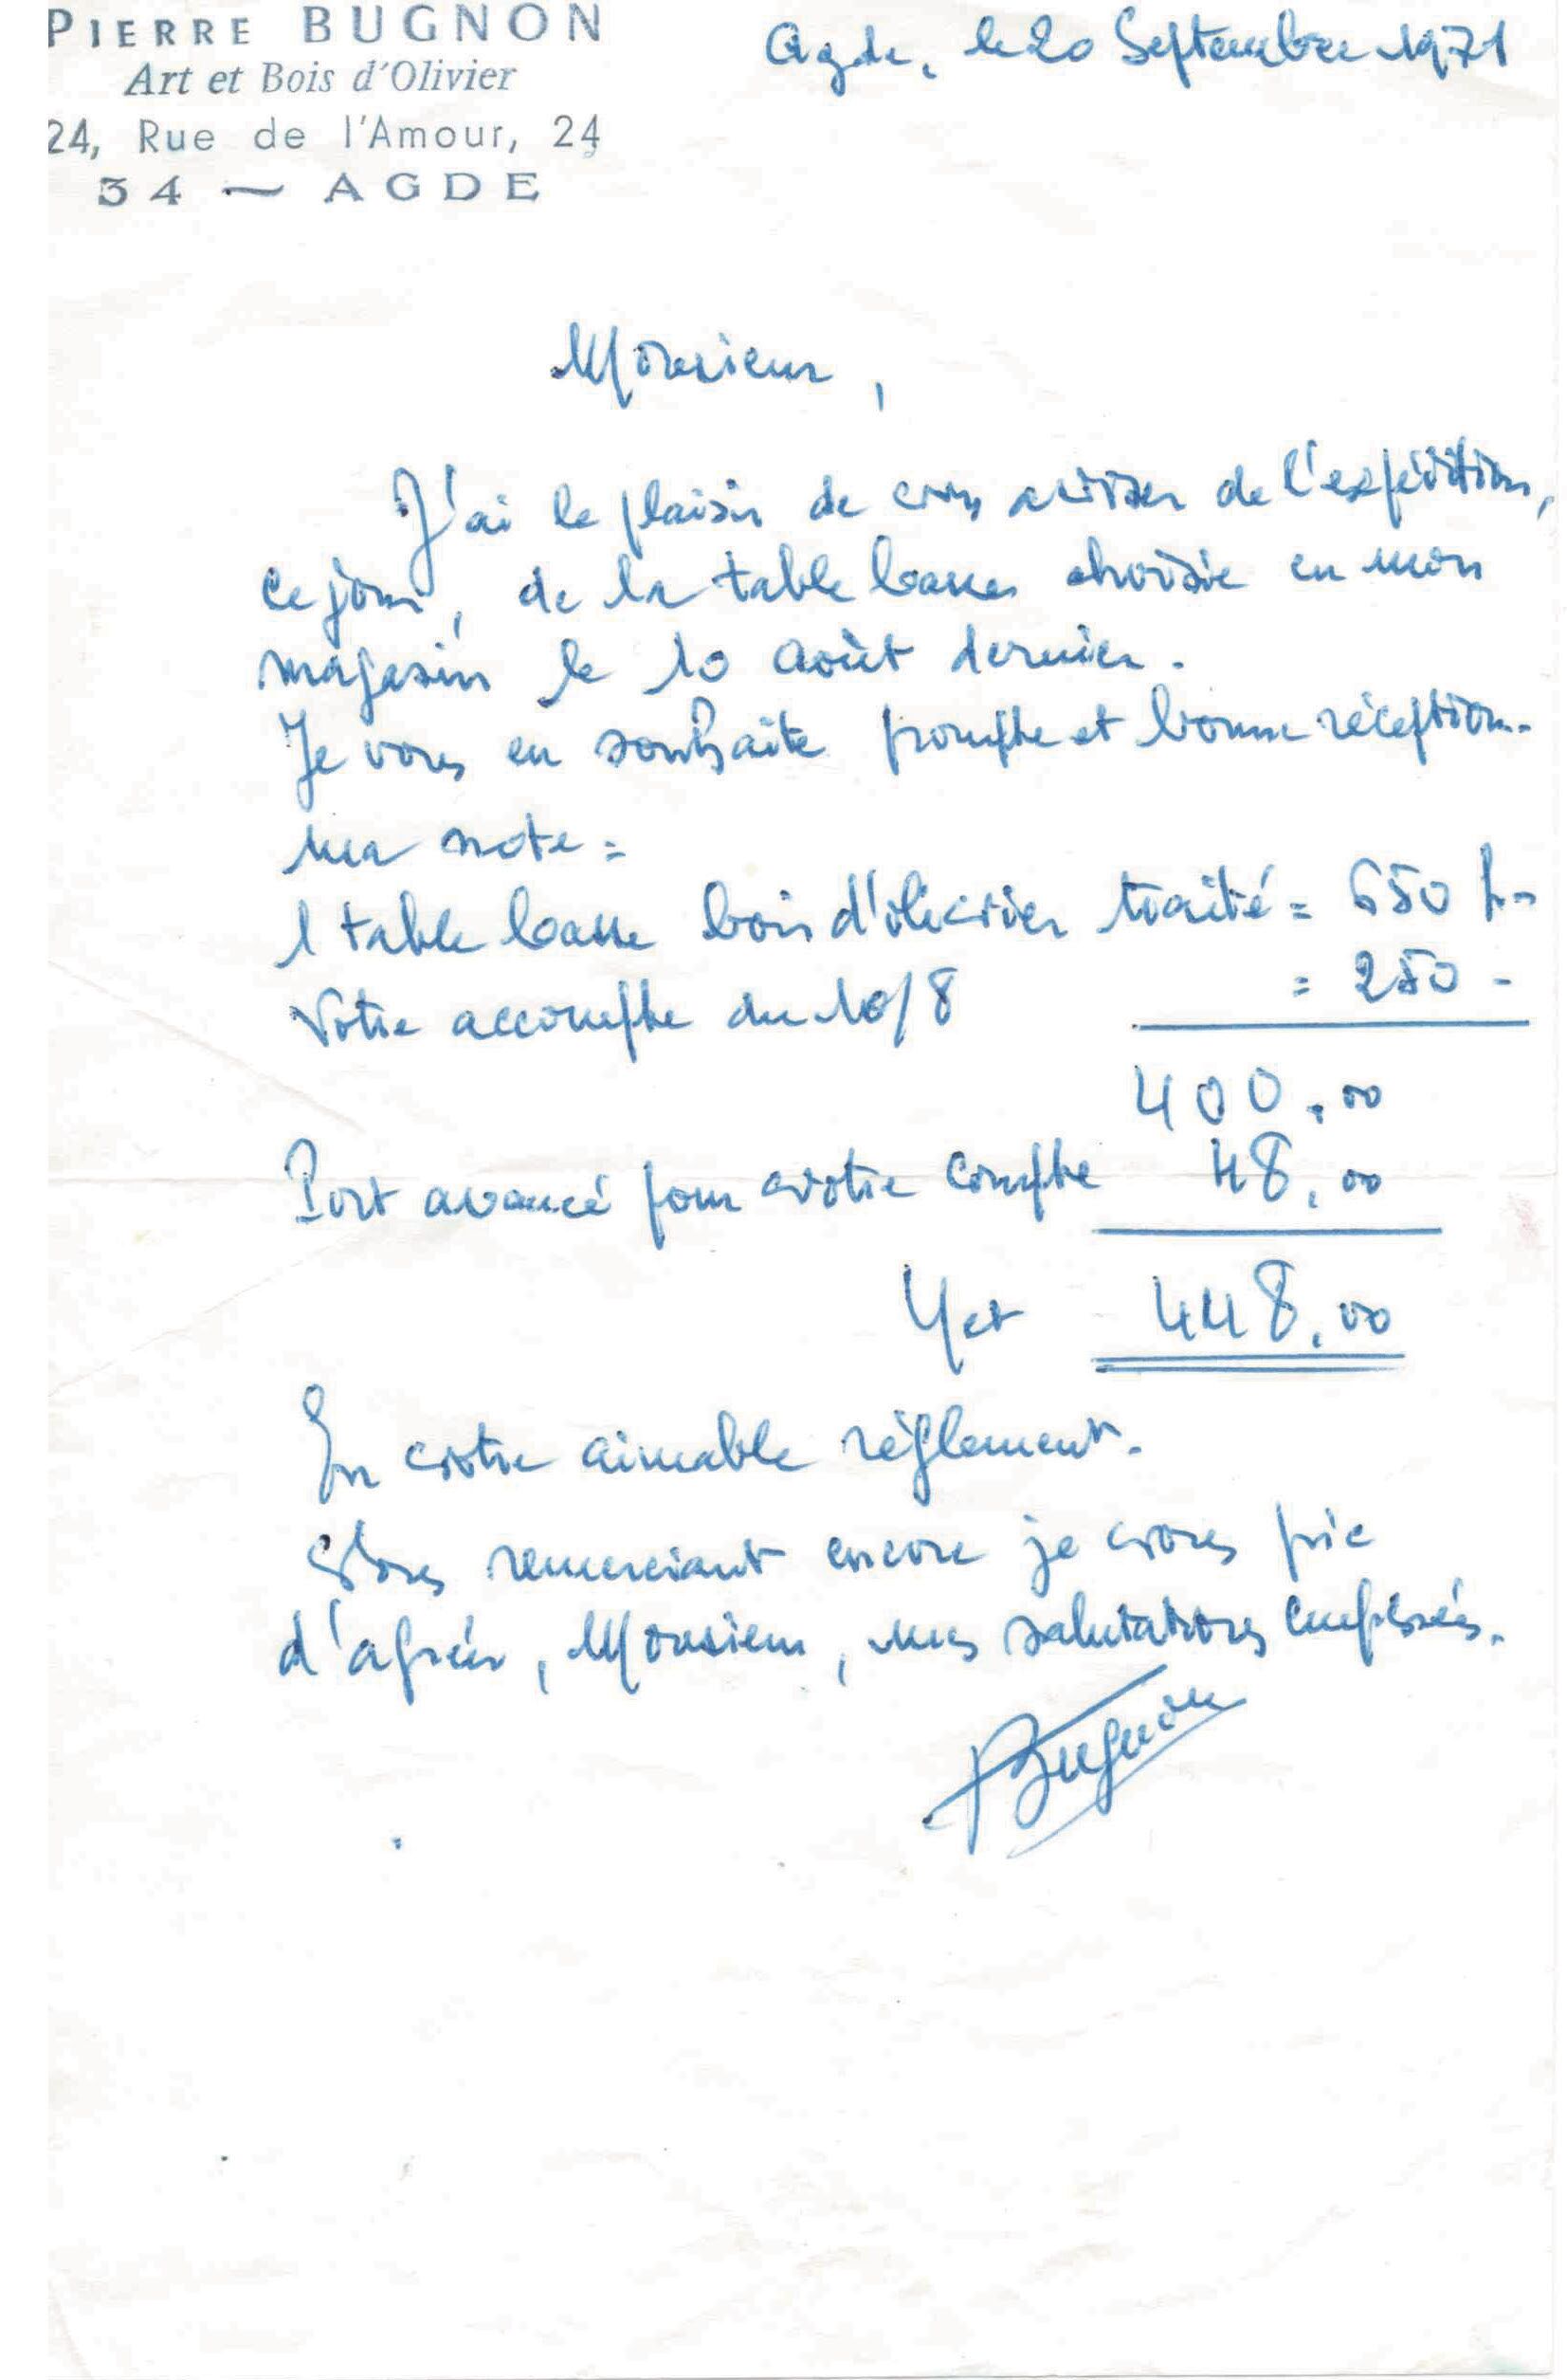 PIERRE BUGNON
Art et Bois d'Olivier
24, Rue de l'Amour, 24
34 ~ AGDE
Agde, le 20 Septembre 1971
Monsieur,
J'ai le plaisir de vous aviser de l'expédition,
ce jour, de la table basse choisie en mon
magasin le 10 août dernier.
Je vous en souhaite prompte et bonne réception.
Ma note =
1 table basse bois d'olivier traité = 650 F.-
Votre accompte du 10/8 = 250 -
400,00
Port avancé pour votre compte 48,00
Net 448,00
En votre aimable règlement.
Vous remerciant encore je vous prie
d'agréer, Monsieur, mes salutations empressées.
PBugnon